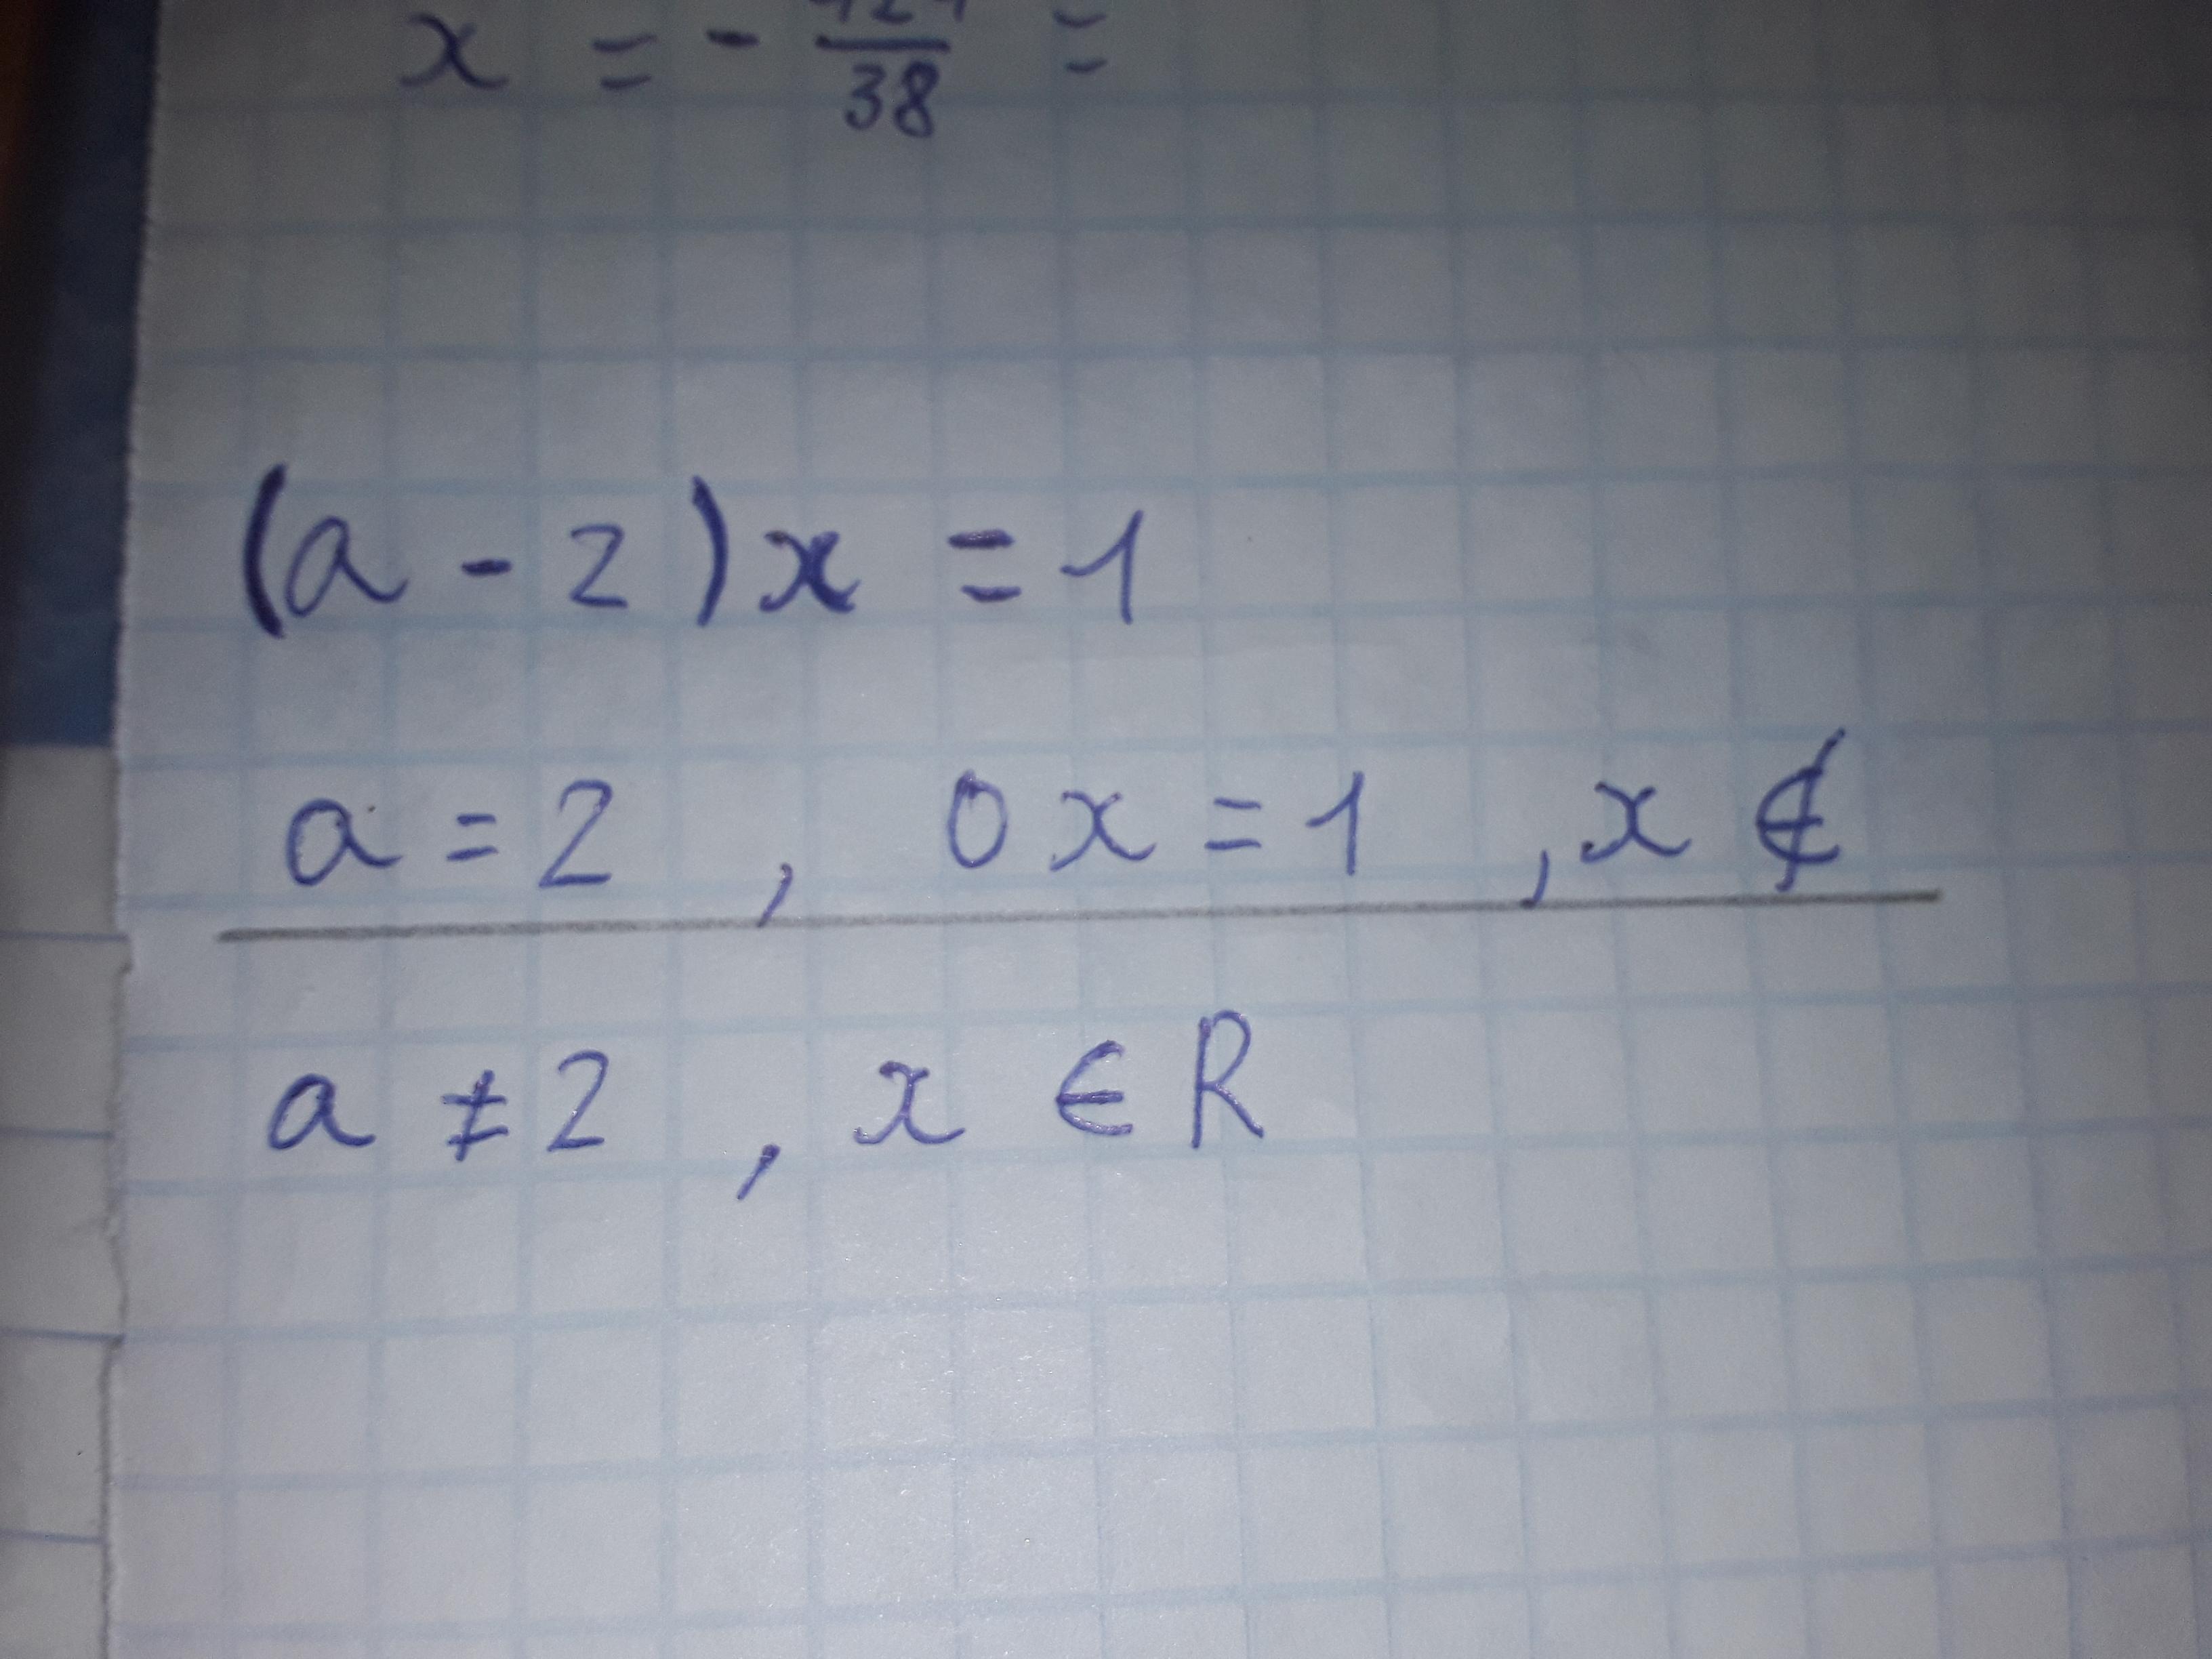 x = - /38 =
(a - 2)x = 1
a = 2 , 0x = 1 , x ∉
a ≠ 2 , x ∈ R